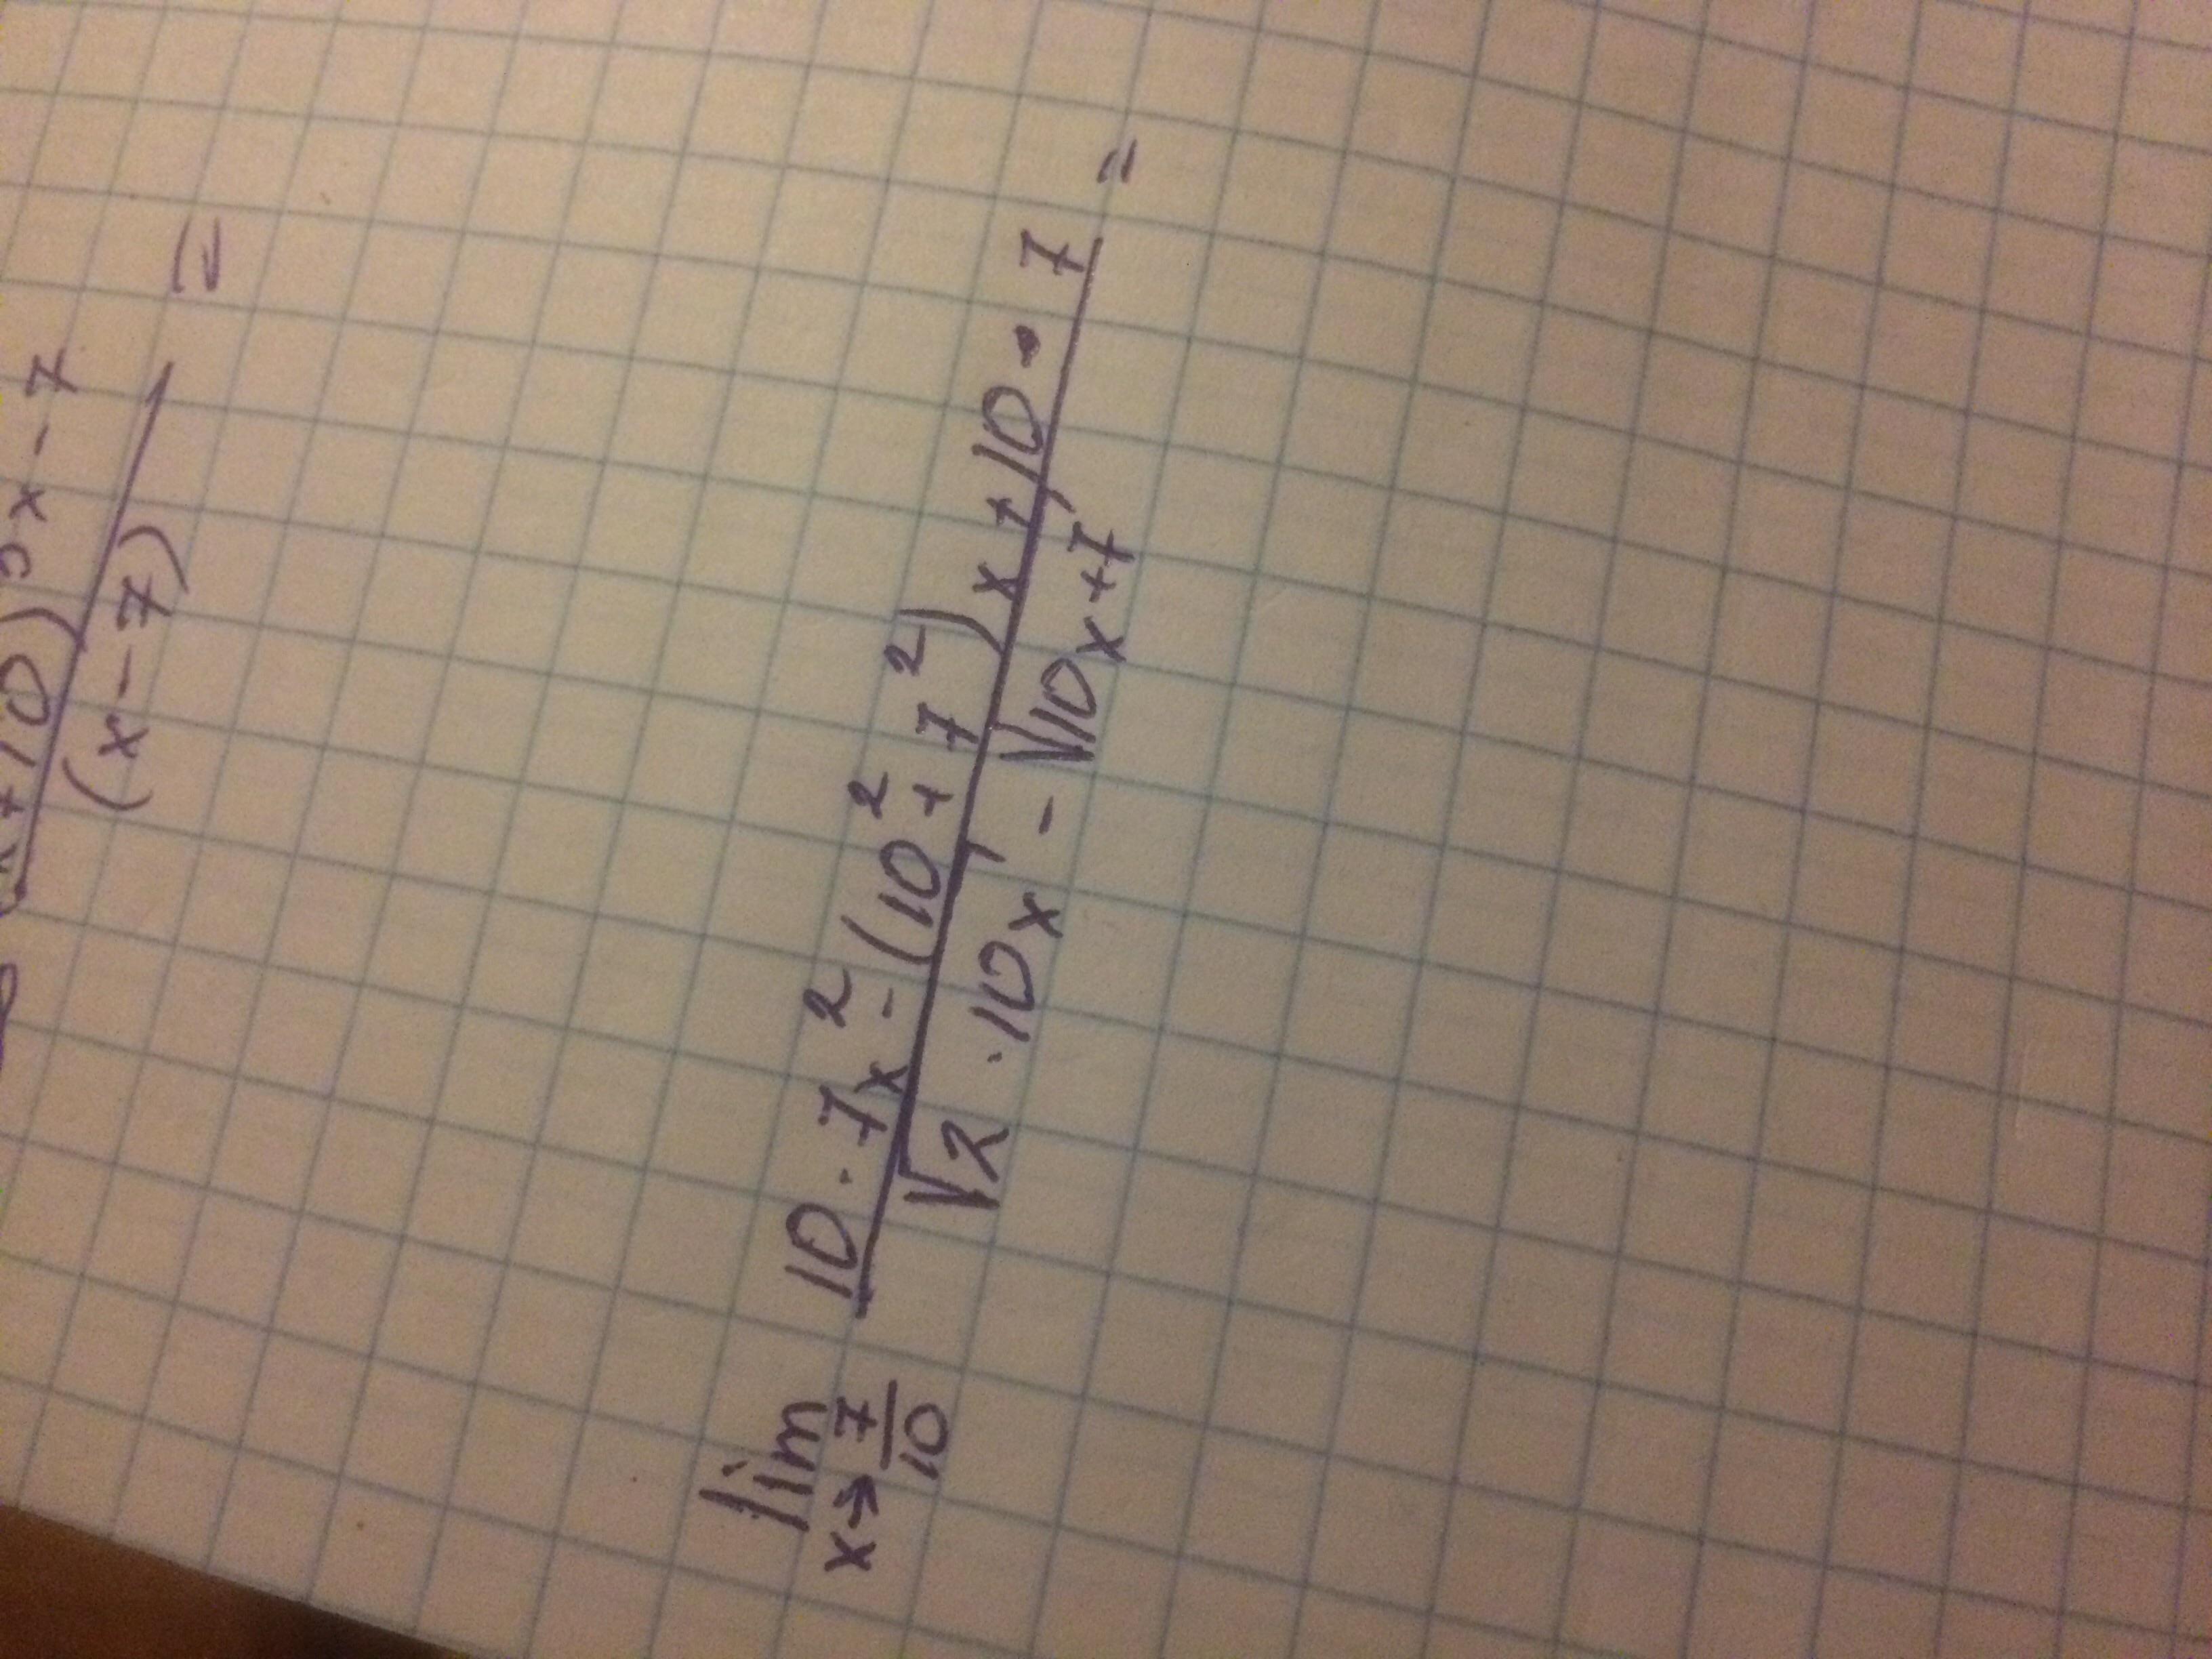 +10)⁵x-7
(x-7) =
lim x→7/10 (10·7x²-(10²+7²)x+10·7)/(√(2·10x)-√(10x+7)) =